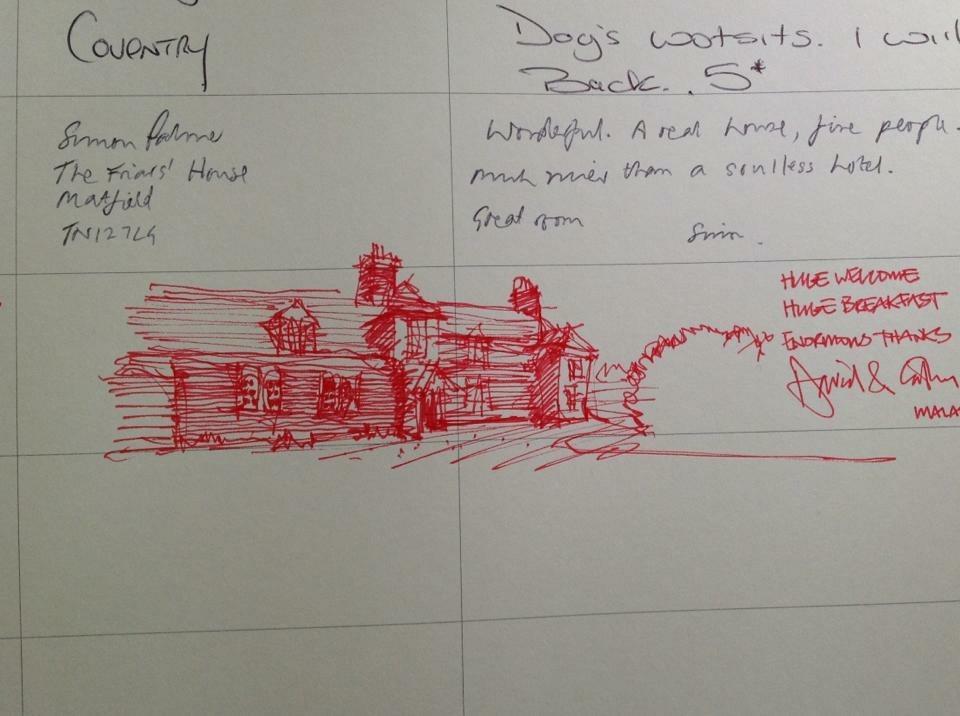 COVENTRY
Dog's wotsits. I will
Back.. 5*
Simon Palmer
The Friars' House
Matfield
TN12 7LG
Wonderful. A real house, fine people.
much nicer than a soulless hotel.
Great room
Simon.
HUGE WELCOME
HUGE BREAKFAST
ENORMOUS THANKS
David &
MALA